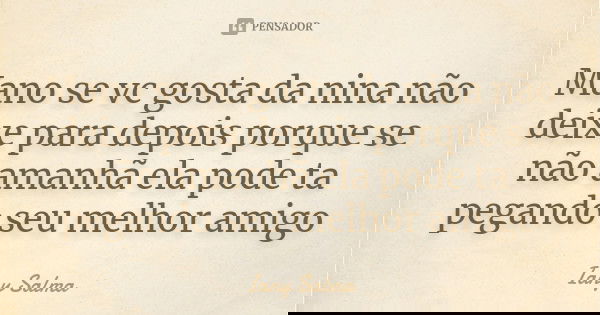 PENSADOR
Mano se vc gosta da nina não
deixe para depois porque se
não amanhã ela pode ta
pegando seu melhor amigo
Iany Salma